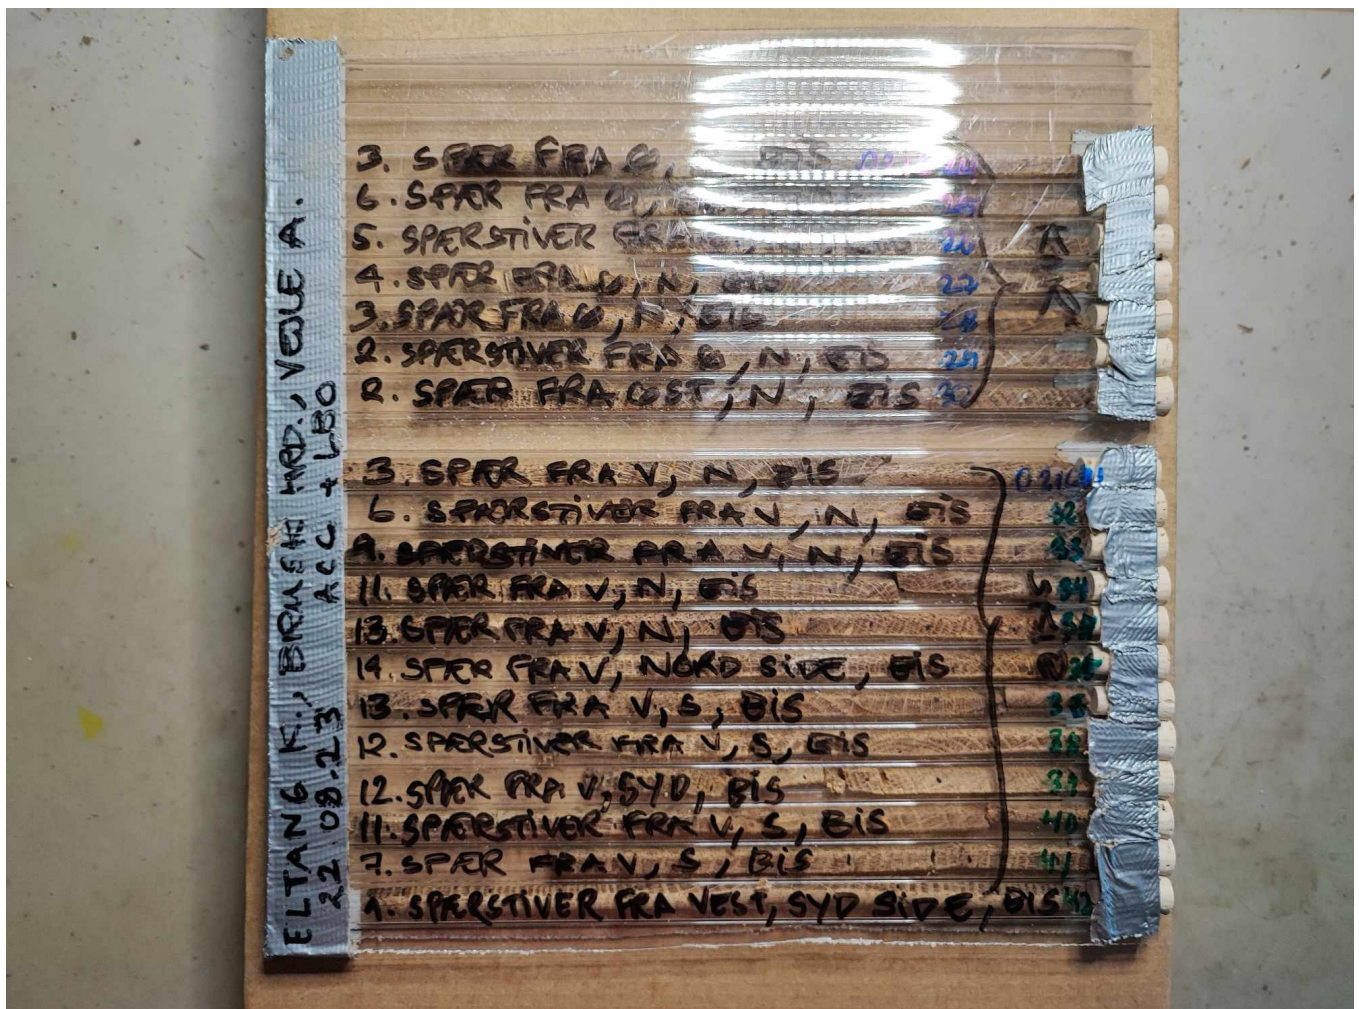 ELTANG K., BRUSK HRD., VEJLE A.
22.08.23 ACC + LBO
3. SPÆR FRA Ø, BIS
6. SPÆR FRA Ø,
5. SPÆRSTIVER FRA
4. SPÆR FRA Ø, N, BIS 27
3. SPÆR FRA Ø, N, BIS 28
2. SPÆRSTIVER FRA Ø, N, BIS 29
2. SPÆR FRA ØST, N, BIS 30
3. SPÆR FRA V, N, BIS
6. SPÆRSTIVER FRA V, N, BIS 32
9. SPÆRSTIVER FRA V, N, BIS 33
11. SPÆR FRA V, N, BIS 34
13. SPÆR FRA V, N, BIS
14. SPÆR FRA V, NORD SIDE, BIS 36
13. SPÆR FRA V, S, BIS
12. SPÆRSTIVER FRA V, S, BIS 38
12. SPÆR FRA V, SYD, BIS 39
11. SPÆRSTIVER FRA V, S, BIS 40
7. SPÆR FRA V, S, BIS 41
1. SPÆRSTIVER FRA VEST, SYD SIDE, BIS 42